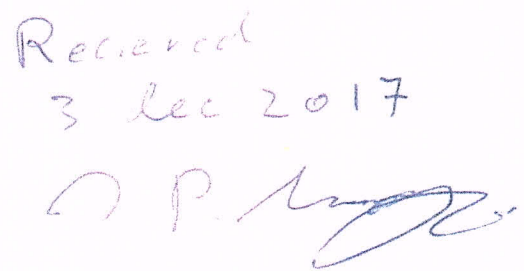 Recieved
3 dec 2017
P.